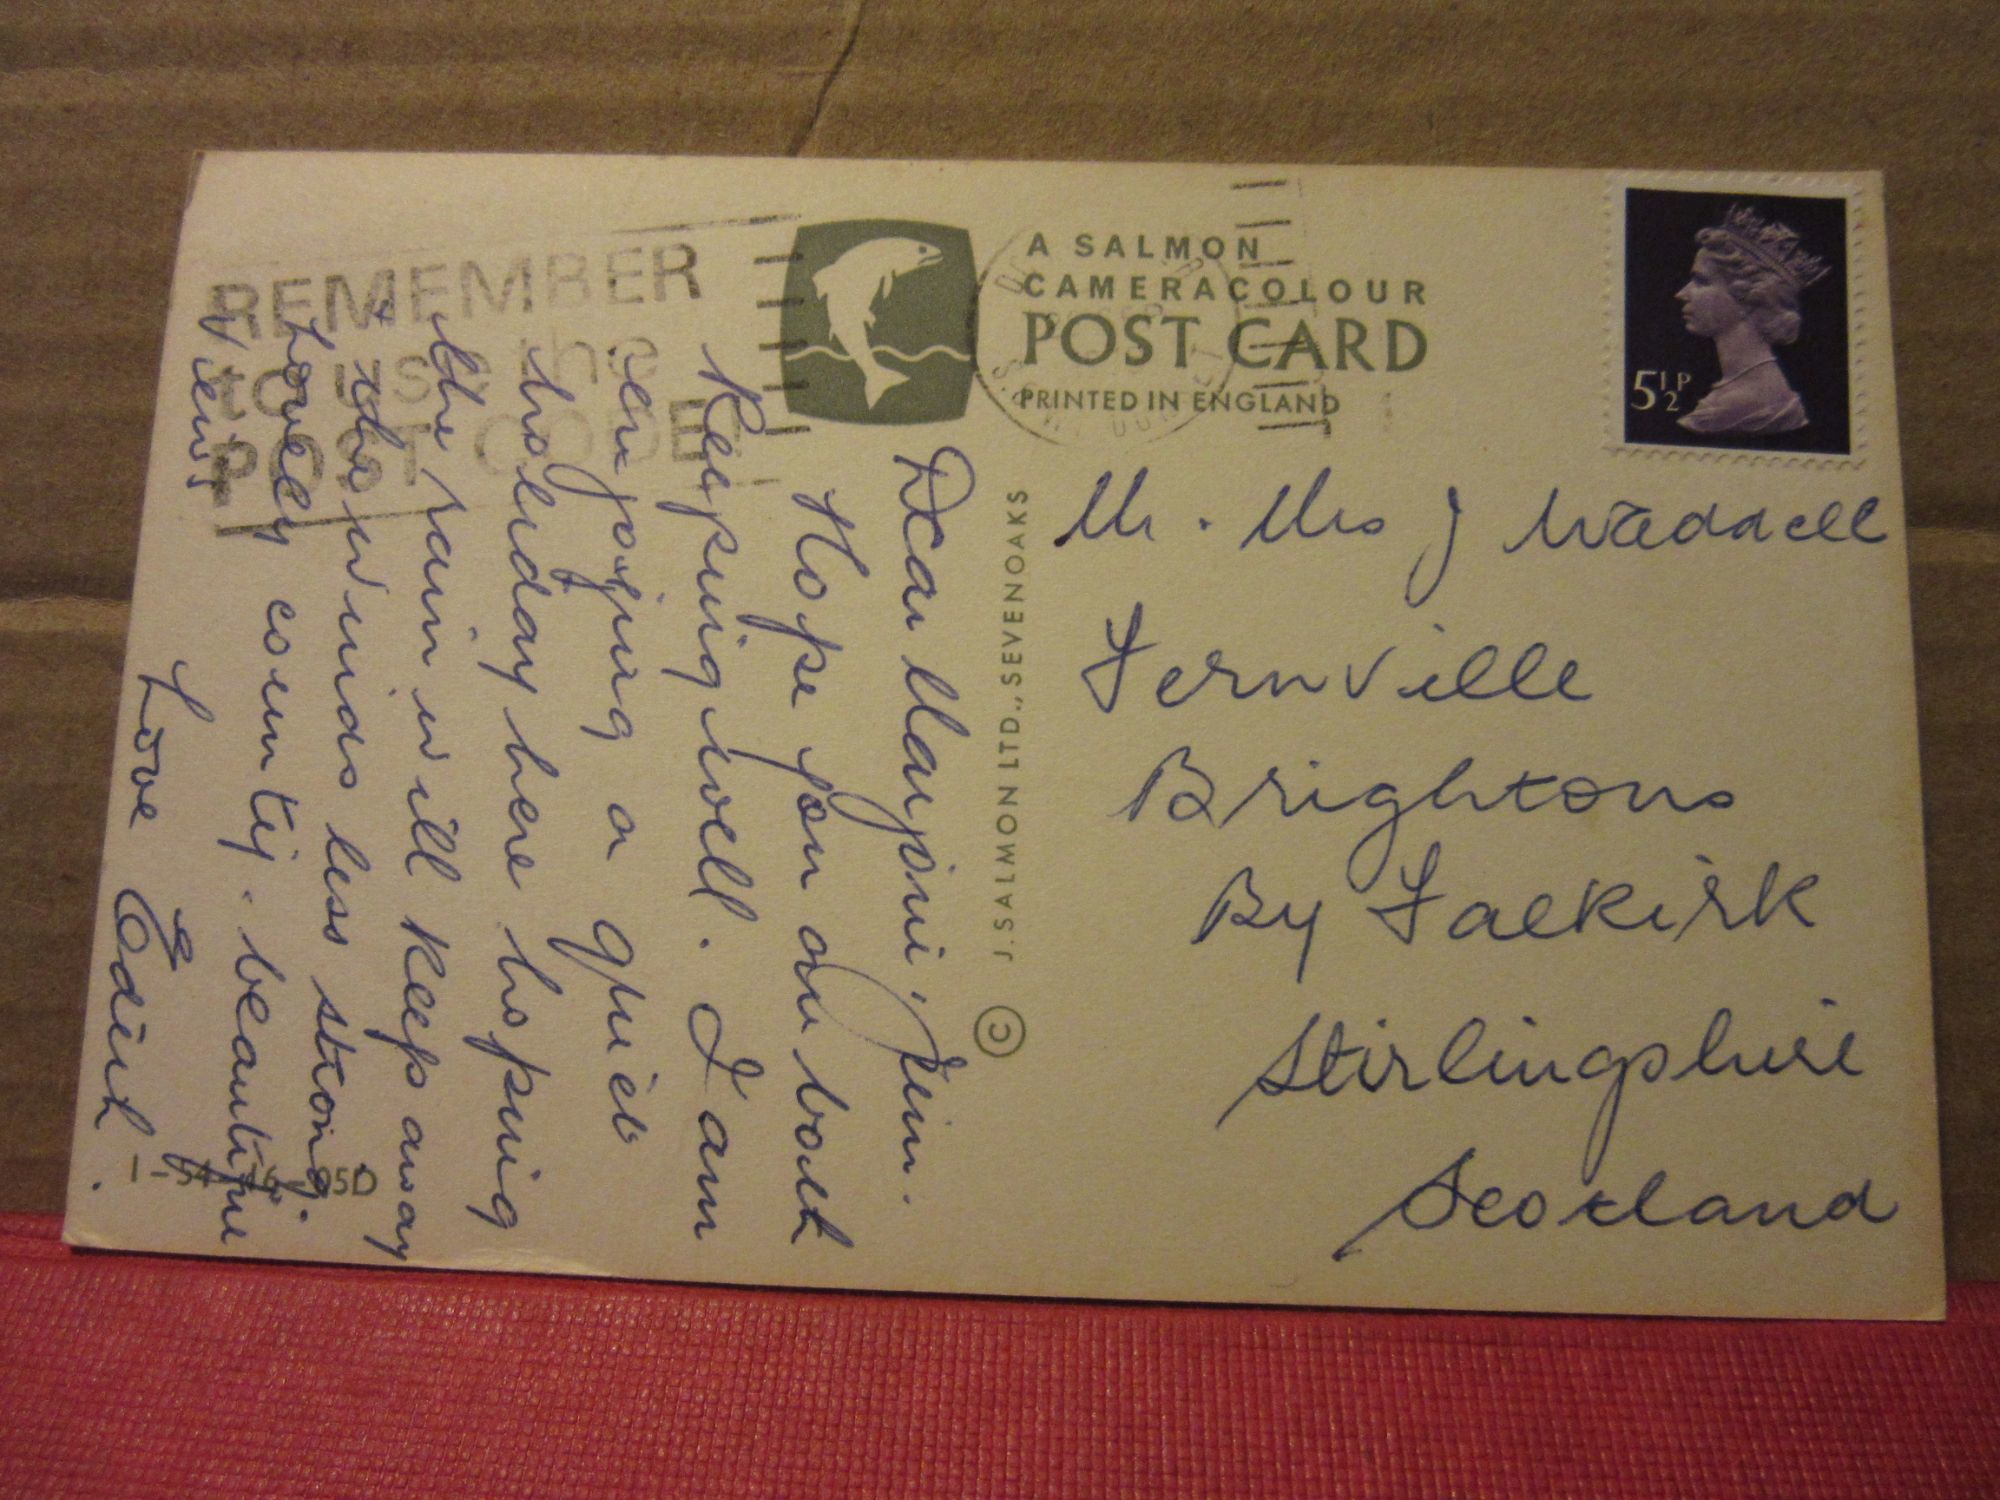 A SALMON
CAMERACOLOUR
POST CARD
PRINTED IN ENGLAND
5½P
REMEMBER
to use the
POST CODE
© J. SALMON LTD., SEVENOAKS
Mr. Mrs J Waddell
Fernville
Brightons
By Falkirk
Stirlingshire
Scotland
Dear Marjorie, Jim.
Hope you are both
keeping well. I am
enjoying a quiet
holiday here hoping
the rain will keep away
+ the winds less strong.
Lovely country. beautiful
views.
Love Edith.